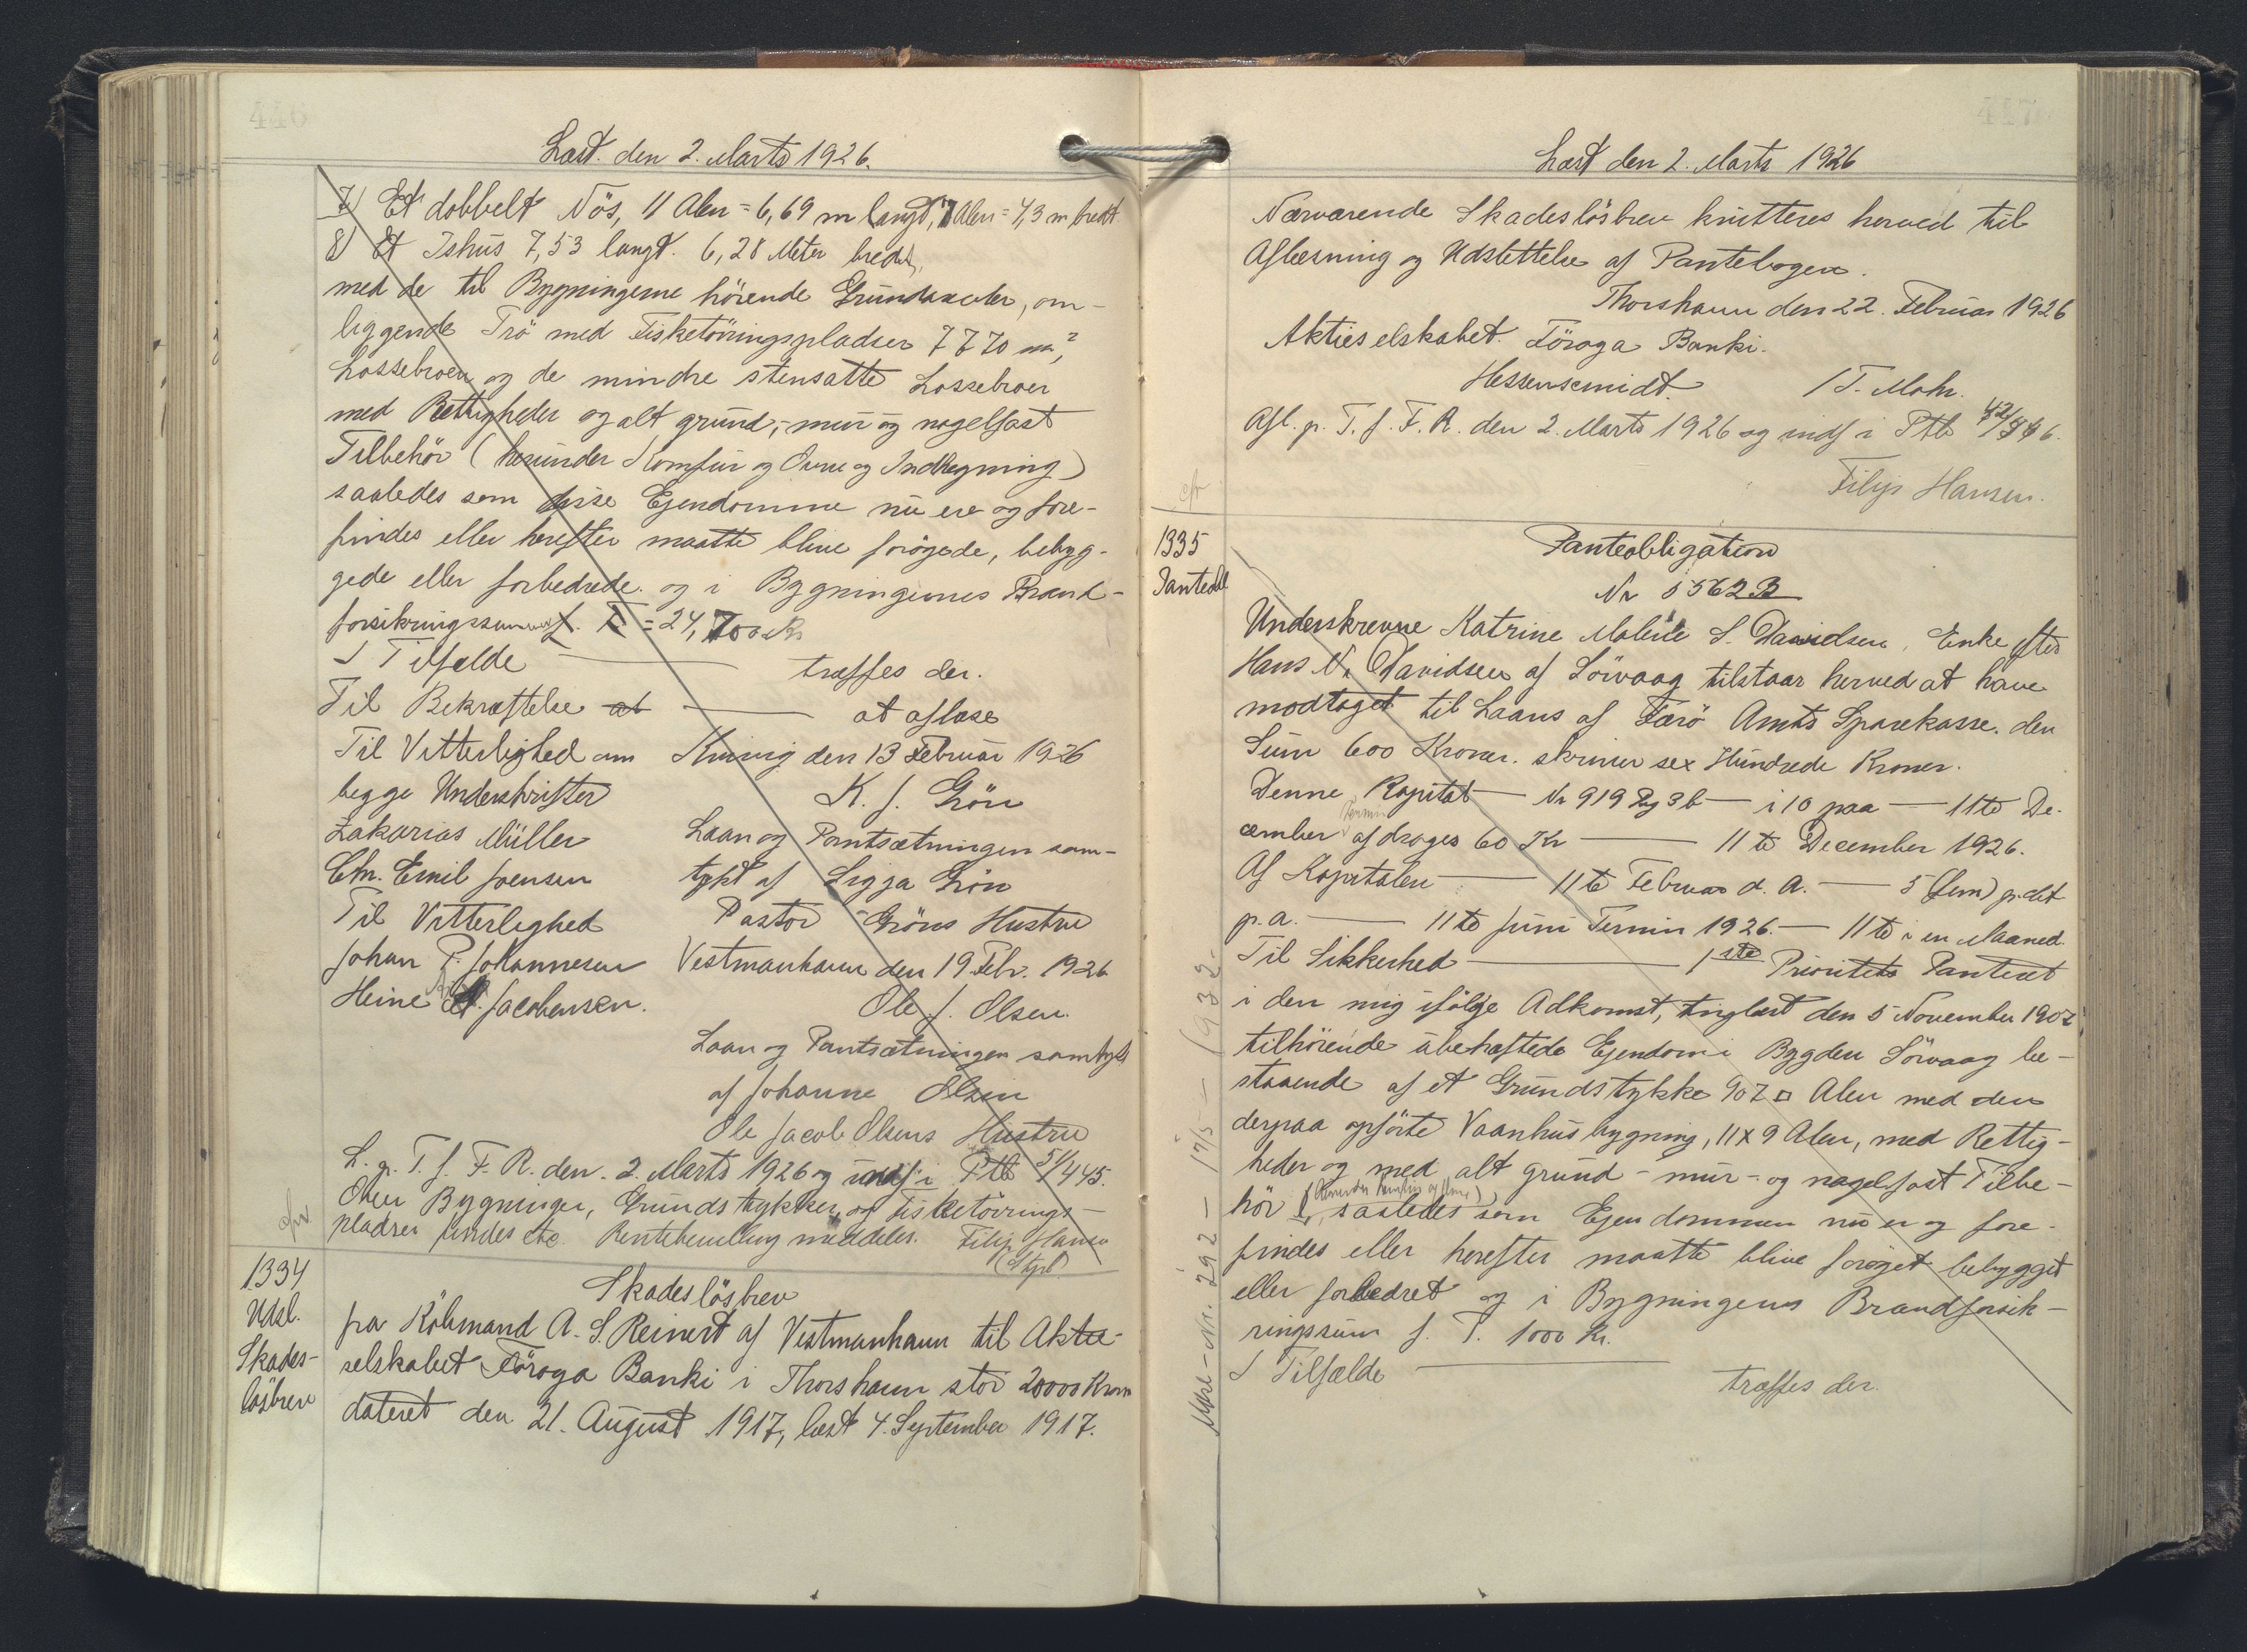 446
Læst. den 2. Marts 1926.
7) Et dobbelt Nös, 11 Alen = 6,69 m langt, 7 Alen = 4,3 m bredt
8) Et Ishus 7,53 langt. 6,28 Meter bredt,
med de til Bygningerne hörende Grundarealer, om-
liggende Trö med Fisketörringspladser 7770 m²,
Lossebroen og de mindre stensatte Lossebroer
med Rettigheder og alt grund,- mur og nagelfast
Tilbehör (herunder Komfur og Ovne og Indhegning)
saaledes som disse Ejendomme nu ere og fore-
findes eller herefter maatte blive forögede, bebyg-
gede eller forbedrede og i Bygningernes Brand-
forsikringssum f. T = 24,700 Kr
I Tilfælde — træffes der.
Til Bekræftelse at — at aflæse
Til Vitterlighed om
begge Underskrifter
Zakarias Müller
Chr. Emil Joensen
Til Vitterlighed
Johan P. Johannesen
Heine Jacobensen.
Kvivig den 13 Februar 1926
K. J. Grön
Laan og Pantsætningen sam-
tykt af Sigga Grön
Pastor Gröns Hustru
Vestmanhavn den 19 Febr. 1926
Ole J. Olsen.
Laan og Pantsætningen samtykt
af Johanne Olsen
Ole Jacob Olsens Hustru
L. p. T. f. F. R. den. 2. Marts 1926 og indf i Ptb 51/445.
Over Bygninger, Grundstykker og Fisketörrings-
pladser findes etc. Rentebevilling meddeles. Filip Hansen
(Stpl)
1334
Udsl.
Skades-
lösbrev
Skadeslösbrev
fra Köbmand A. S. Reinert af Vestmanhavn til Aktie-
selskabet Föroya Banki i Thorshavn stor 20000 Kron
dateret den 21. August 1917, læst 4. September 1917.
447
Læst den 2. Marts 1926
Nærværende Skadeslösbrev kvitteres herved til
Aflæsning og Udslettelse af Pantebogen.
Thorshavn den 22. Februar 1926
Aktieselskabet. Föroya Banki.
Hessenscmidt. / T. Mohr.
Afl. p. T. f. F. R. den 2. Marts 1926 og indf i Ptb
Filip Hansen.
1335
Panteobl
Panteobligation
Nr 5562 B
Underskrevne Katrine Malene S. Davidsen, Enke efter
Hans N. Davidsen af Sörvaag tilstaar herved at have
modtaget til Laans af Færö Amts Sparekasse. den
Sum 600 Kroner. skriver sex Hundrede Kroner.
Denne Kapital — Nr 919 Pg 36 — i 10 paa — 11te De-
cember Termin afdrages 60 Kr — 11te December 1926.
Af Kapitalen — 11te Februar d. A. — 5 (fem) p. ct
p. a. — 11te Juni Termin 1926. — 11te i en Maaned.
Til Sikkerhed — 1ste Prioritets Panteret
i den mig ifölge Adkomst, tinglæst den 5 November 1907
tilhörende ubehæftede Ejendom i Bygden Sörvaag be-
staaende af et Grundstykke 907 □ Alen med den
derpaa opförte Vaanhusbygning, 11 x 9 Alen, med Rettig-
heder og med alt grund - mur - og nagelfast Tilbe-
hör (herunder Komfur og Ovne), saaledes som Ejendommen nu er og fore-
findes eller herefter maatte blive foröget bebygget
eller forbedret og i Bygningens Brandforsik-
ringssum f. T. 1000 Kr.
I Tilfælde — træffes der.
Udsl - Nr. 292 - 17/5 - 1932.